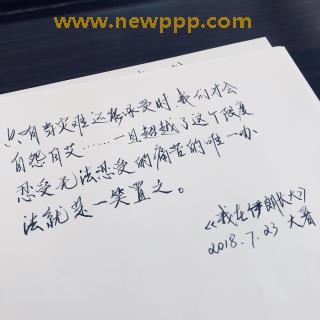 www.newppp.com
只有当灾难还能承受时我们才会
自怨自艾……一旦超越了这个限度
忍受无法忍受的痛苦的唯一办
法就是一笑置之。
《我在伊朗长大》
2018.7.23 大暑